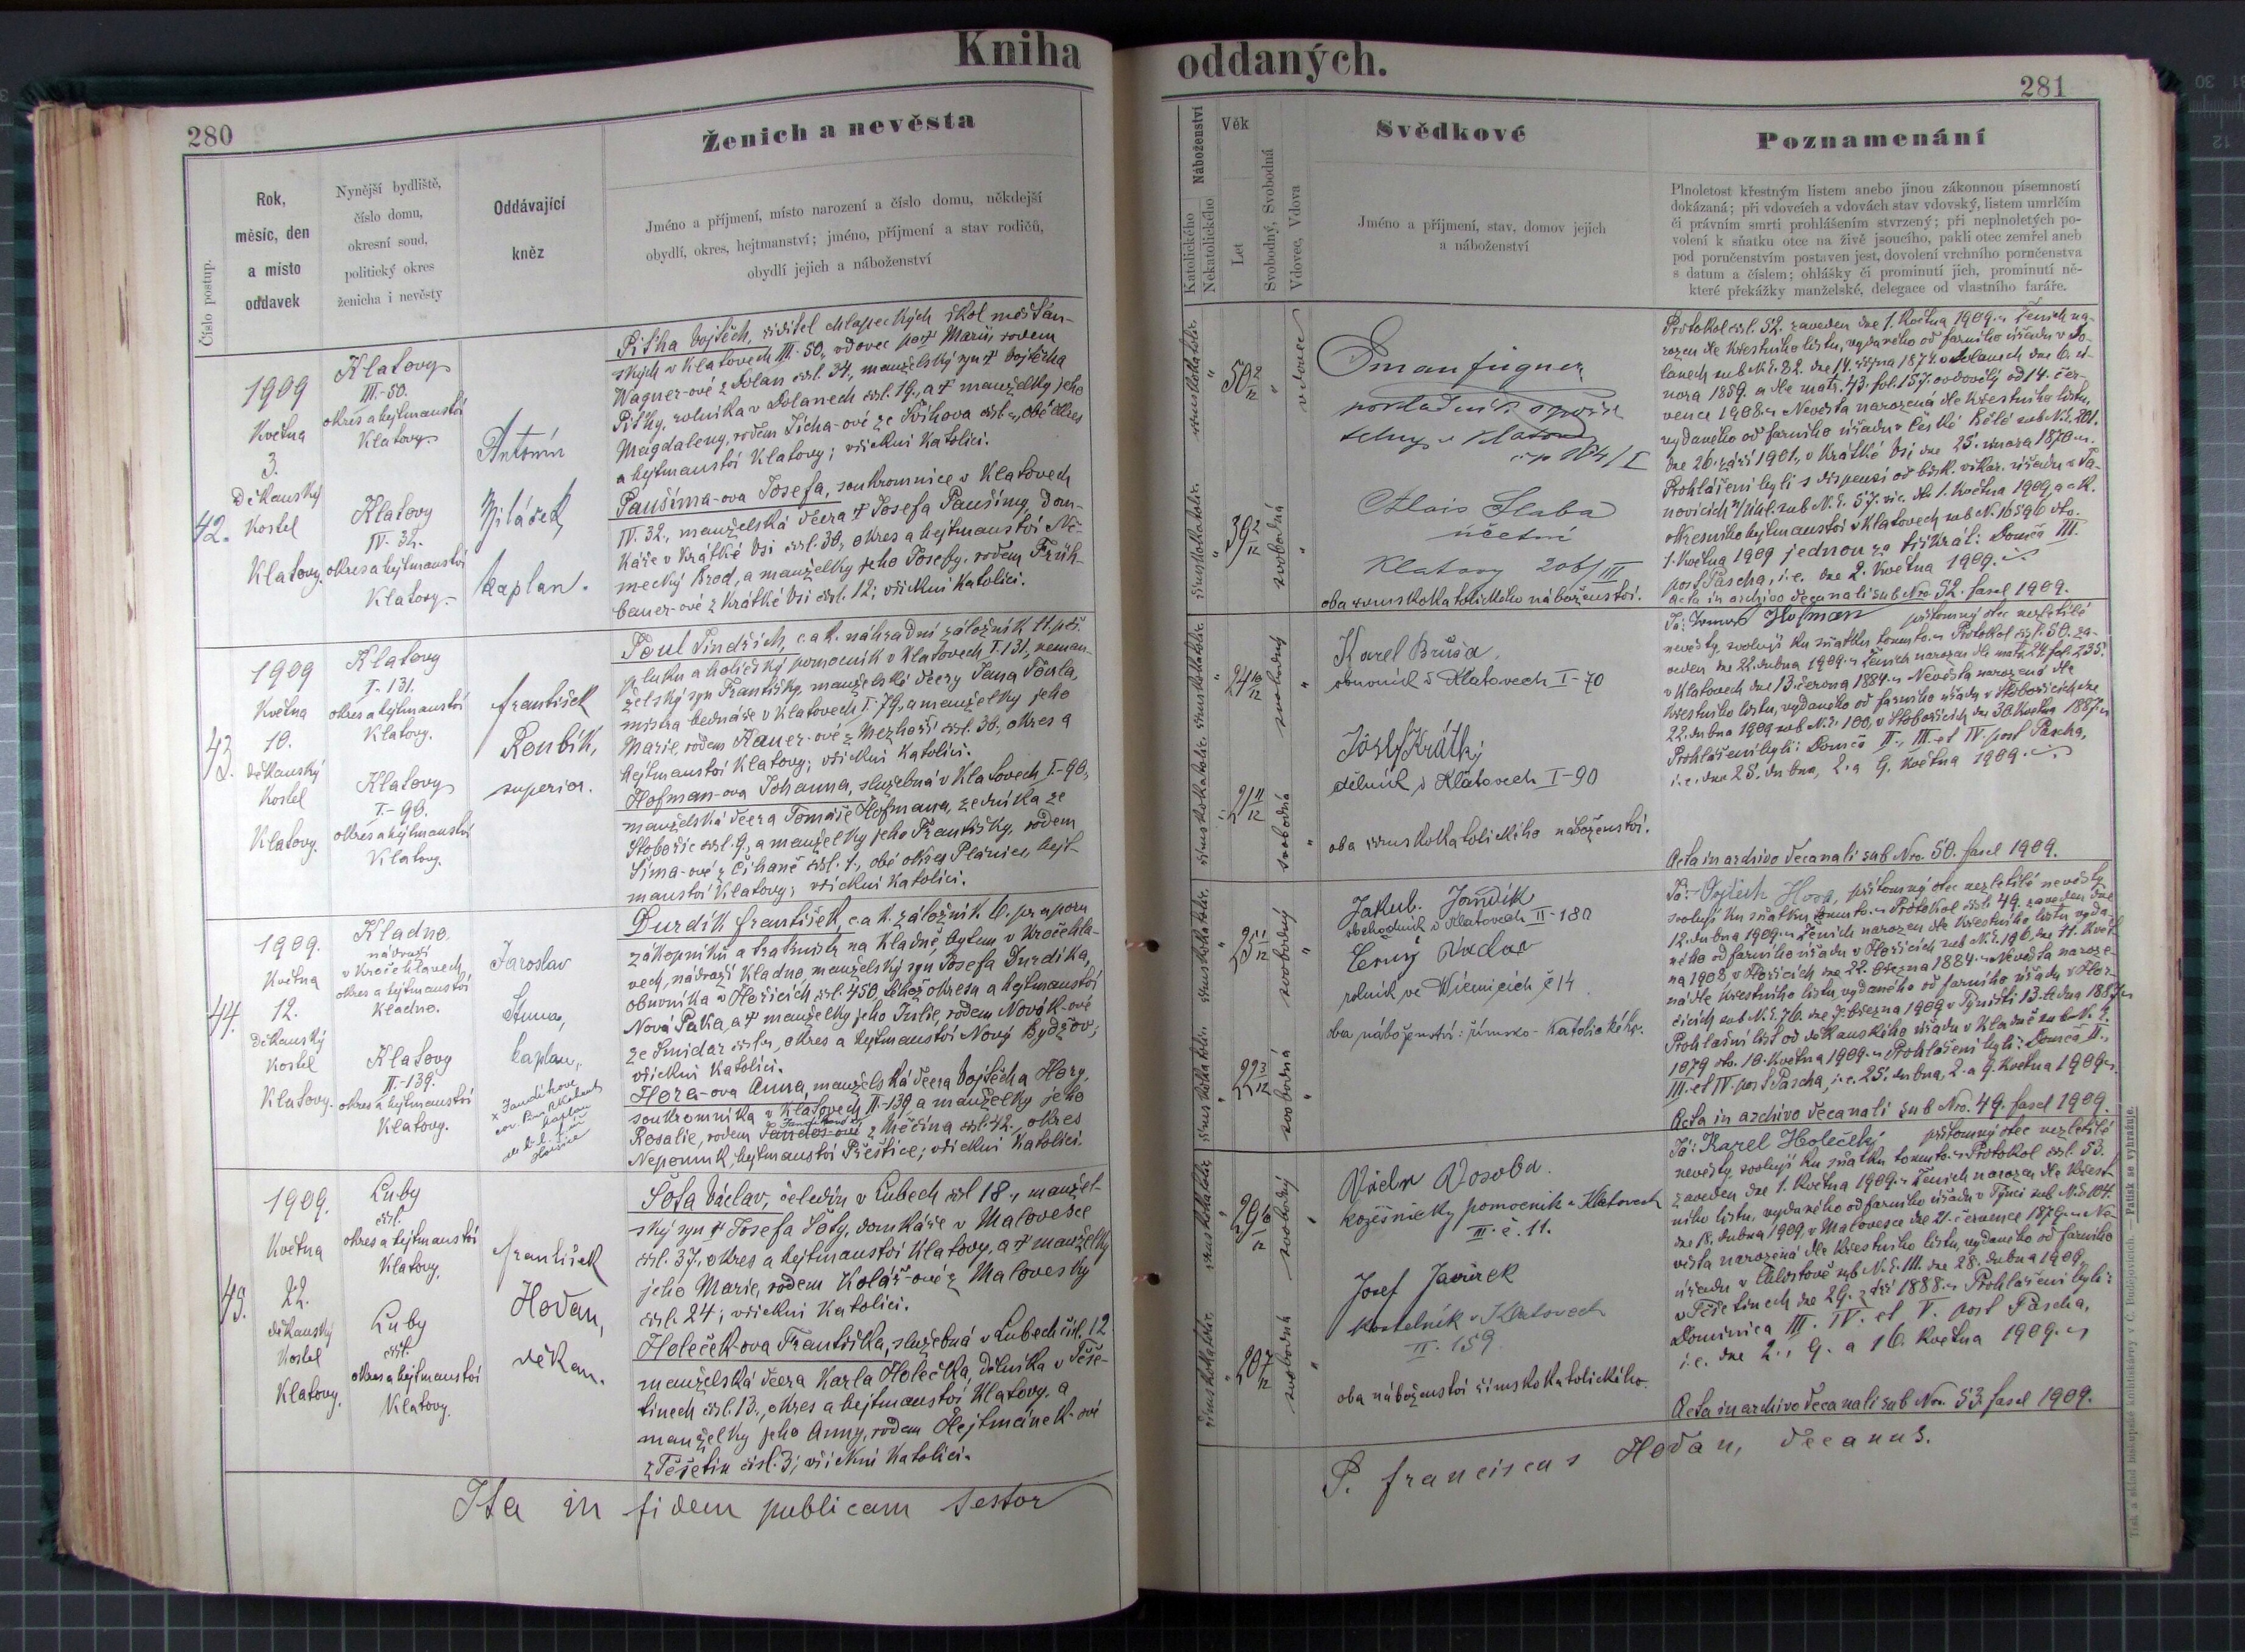 Kniha
280
Ženich a nevěsta
Číslo postup.
Rok,
měsíc, den
a místo
oddavek
Nynější bydliště,
číslo domu,
okresní soud,
politický okres
ženicha i nevěsty
Oddávající
kněz
Jméno a příjmení, místo narození a číslo domu, někdejší
obydlí, okres, hejtmanství; jméno, příjmení a stav rodičů,
obydlí jejich a náboženství
42.
1909
Května
3.
Děkanský
Kostel
Klatovy
Klatovy
III.-50.
okres a hejtmanství
Klatovy.
Klatovy
IV.-32.
okres a hejtmanství
Klatovy.
Antonín
kaplan.
Piťha Vojtěch, řiditel chlapeckých škol měšťan-
ských v Klatovech III.-50., vdovec po † Marii rodem
Wagner-ové z Dolan čísl. 34., manželský syn † Vojtěcha
Piťhy, rolníka v Dolanech čísl. 19., a † manželky jeho
Magdaleny, rodem Tícha-ové ze Svíhova čísl. „, obé okres
a hejtmanství Klatovy; všickni Katolíci.
Paušima-ova Josefa, soukromnice v Klatovech
IV. 32., manželská dcera † Josefa Paušimy, dom-
káře v Krátké Vsi čísl. 30, okres a hejtmanství Ně-
mecký Brod, a manželky jeho Josefy, rodem Früh-
bauer-ové z Krátké Vsi čísl. 12; všickni Katolíci.
43.
1909
Května
10.
děkanský
Kostel
Klatovy.
Klatovy
I.-131.
okres a hejtmanství
Klatovy.
Klatovy
I.-90.
okres a hejtmanství
Klatovy.
František
Roubík,
superior.
Toul Jindřich, c. a k. náhradní záložník 11. pěš.
pluku a holičský pomocník v Klatovech I.-131., neman-
želský syn Františky, manželské dcery Jana Toula,
mistra bednáře v Klatovech I.-79., a manželky jeho
Marie, rodem Kauer-ové z Mezhoří čísl. 30., okres a
hejtmanství Klatovy; všickni Katolíci.
Hofman-ova Johanna, služebná v Klatovech I-90.,
manželská dcera Tomáše Hofmana, zedníka ze
Stobořic čísl. 9., a manželky jeho Františky, rodem
Šíma-ové z Číhaně čísl. 1., obé okres Plánice, hejt-
manství Klatovy; všickni Katolíci.
44.
1909.
Května
12.
děkanský
Kostel
Klatovy.
Kladno,
nádraží
v Kročehlavech,
okres a hejtmanství
Kladno.
Klatovy
II.-139.
okres a hejtmanství
Klatovy.
Jaroslav
kaplan.
Durdík František, c. a k. záložník 6. praporu
zákopníků a tratmistr na Kladně, bytem v Kročehla-
vech, nádraží Kladno, manželský syn Josefa Durdíka,
obuvníka v Hořicích čísl. 450 téhož okresu a hejtmanství
Nová Paka, a † manželky jeho Julie, rodem Novák-ové
ze Smidar čísl. „, okres a hejtmanství Nový Bydžov;
všickni Katolíci.
Hora-ova Anna, manželská dcera Vojtěcha Hory,
soukromníka v Klatovech II.-139, a manželky jeho
Rosalie, rodem z Měčína čísl. 42., okres
Nepomuk, hejtmanství Přeštice; všickni Katolíci.
45.
1909.
Května
22.
děkanský
Kostel
Klatovy.
Luby
čísl.
okres a hejtmanství
Klatovy.
Luby
čísl.
okres a hejtmanství
Klatovy.
František
Hoďan,
děkan.
Šota Václav, čeledín v Lubech čísl 18., manžel-
ský syn † Josefa Šoty, domkáře v Malovesce
čísl. 37., okres a hejtmanství Klatovy, a † manželky
jeho Marie, rodem Kolář-ové z Malovesky
čísl. 24; všickni Katolíci.
Holeček-ova Františka, služebná v Lubech čísl. 12
manželská dcera Karla Holečka, dělníka v Těše-
tinech čísl. 13., okres a hejtmanství Klatovy, a
manželky jeho Anny, rodem Hejtmánek-ové
z Těšetin čísl. 3; všickni Katolíci.
Ita in fidem publicam testor
oddaných.
281
Náboženství
Katolického
Nekatolického
Věk
Let
Svobodný, Svobodná
Vdovec, Vdova
Svědkové
Jméno a příjmení, stav, domov jejich
a náboženství
Poznamenání
Plnoletost křestným listem anebo jinou zákonnou písemností
dokázaná; při vdovcích a vdovách stav vdovský, listem umrlčím
či právním smrti prohlášením stvrzený; při neplnoletých po-
volení k sňatku otce na živě jsoucího, pakli otec zemřel aneb
pod poručenstvím postaven jest, dovolení vrchního poručenstva
s datum a číslem; ohlášky či prominutí jich, prominutí ně-
které překážky manželské, delegace od vlastního faráře.
římskokatolic.
50 2/12
vdovec
římskokatolic.
39 2/12
svobodná
Alois Sluba
účetní
Klatovy 206/III
oba římskokatolického náboženství.
Protokol čísl. 52. zaveden dne 1. Května 1909. Ženich na-
rozen dle křestního listu, vydaného od farního úřadu v Do-
lanech sub N.č. 82. dne 14. října 1874. v Dolanech dne 6. ú-
nora 1859. a dle matr. 43. fol. 157. ovdověly od 14. čer-
vence 1908. Nevěsta narozená dle křestního listu,
vydaného od farního úřadu v České Bělé sub N.č. 401.
dne 26. září 1901., v Krátké Vsi dne 25. února 1870.
Prohlášení byli s dispensí od bisk. vikar. úřadu v Ja-
novicích n/Úhl. sub N.č. 57. vic. dto 1. Května 1909, a c.k.
okresního hejtmanství v Klatovech sub N. 16596 dto.
1. Května 1909 jednou za třikrát: Domca III.
post Pascha, i.e. dne 2. Května 1909.
Acta in archivo decanali sub Nro. 52. fascl 1909.
římskokatolic.
24 10/12
svobodný
římskokatolic.
21 11/12
svobodná
Karel Bruša,
obuvník v Klatovech I-70
Josef Krátký
dělník v Klatovech I-90
oba římskokatolického náboženství.
Já: Tomáš Hofman přítomný otec nezletilé
nevěsty, svoluji ku sňatku tomuto. Protokol čísl. 50. za-
veden dne 22. dubna 1909. Ženich narozen dle matr. 24. fol. 235.
v Klatovech dne 13. června 1884. Nevěsta narozená dle
křestního listu, vydaného od farního úřadu v Stobořicích dne
22. dubna 1909 sub N.č. 100, v Stobořicích dne 30. Května 1887.
Prohlášení byli: Domca II., III. et IV. post Pascha,
i.e. dne 25. dubna, 2. a 9. Května 1909.
Acta in archivo decanali sub Nro. 50. fascl 1909.
římskokatolic.
25 1/12
svobodný
římskokatolic.
22 3/12
svobodná
Jakub Jandík
obchodník v Klatovech II-180
Černý Václav
rolník ve Vícenicích č 14
oba náboženství: římsko-katolického.
Já: Vojtěch Hora, přítomný otec nezletilé nevěsty
svoluji ku sňatku tomuto. Protokol čísl. 49. zaveden dne
12. dubna 1909. Ženich narozen dle křestního listu vyda-
ného od farního úřadu v Hořicích sub N.č. 196. dne 11. Květ-
na 1908 v Hořicích dne 22. března 1884. Nevěsta naroze-
ná dle křestního listu, vydaného od farního úřadu v Hor-
čicích sub N.č. 76. dne 7. března 1909 v Týništi 13. ledna 1887
Prohlašní list od děkanského úřadu v Kladně sub N. č.
1079 dto. 10. Května 1909. Prohlášení byli: Domca II.,
III. et IV. post Pascha, i.e. 25. dubna, 2. a 9. Května 1909.
Acta in archivo decanali sub Nro. 49. fascl 1909.
římskokatolic.
29 10/12
svobodný
římskokatolic.
20 7/12
svobodná
Václav Vosoba.
kožešnický pomocník v Klatovech
III. č. 11.
Josef Javůrek
kostelník v Klatovech
II. 159.
oba náboženství římskokatolického.
Já: Karel Holečký přítomný otec nezletilé
nevěsty, svoluji ku sňatku tomuto. Protokol čísl. 53.
zaveden dne 1. Května 1909. Ženich narozen dle křest-
ního listu, vydaného od farního úřadu v Týnci sub N.č. 104.
dne 18. dubna 1909, v Malovesce dne 21. července 1879. Ne-
věsta narozená dle křestního listu, vydaného od farního
úřadu v Chlistově sub N.č. 111. dne 28. dubna 1909,
v Těšetinech dne 29. září 1888. Prohlášeni byli:
Dominica III. IV. et V. post Pascha,
i.e. dne 2., 9. a 16. Května 1909.
Acta in archivo decanali sub Nro. 53. fascl 1909.
P. Franciscus Hoďan, decanus.
Tisk a sklad biskupské knihtiskárny v Č. Budějovicích. — Patisk se vyhražuje.